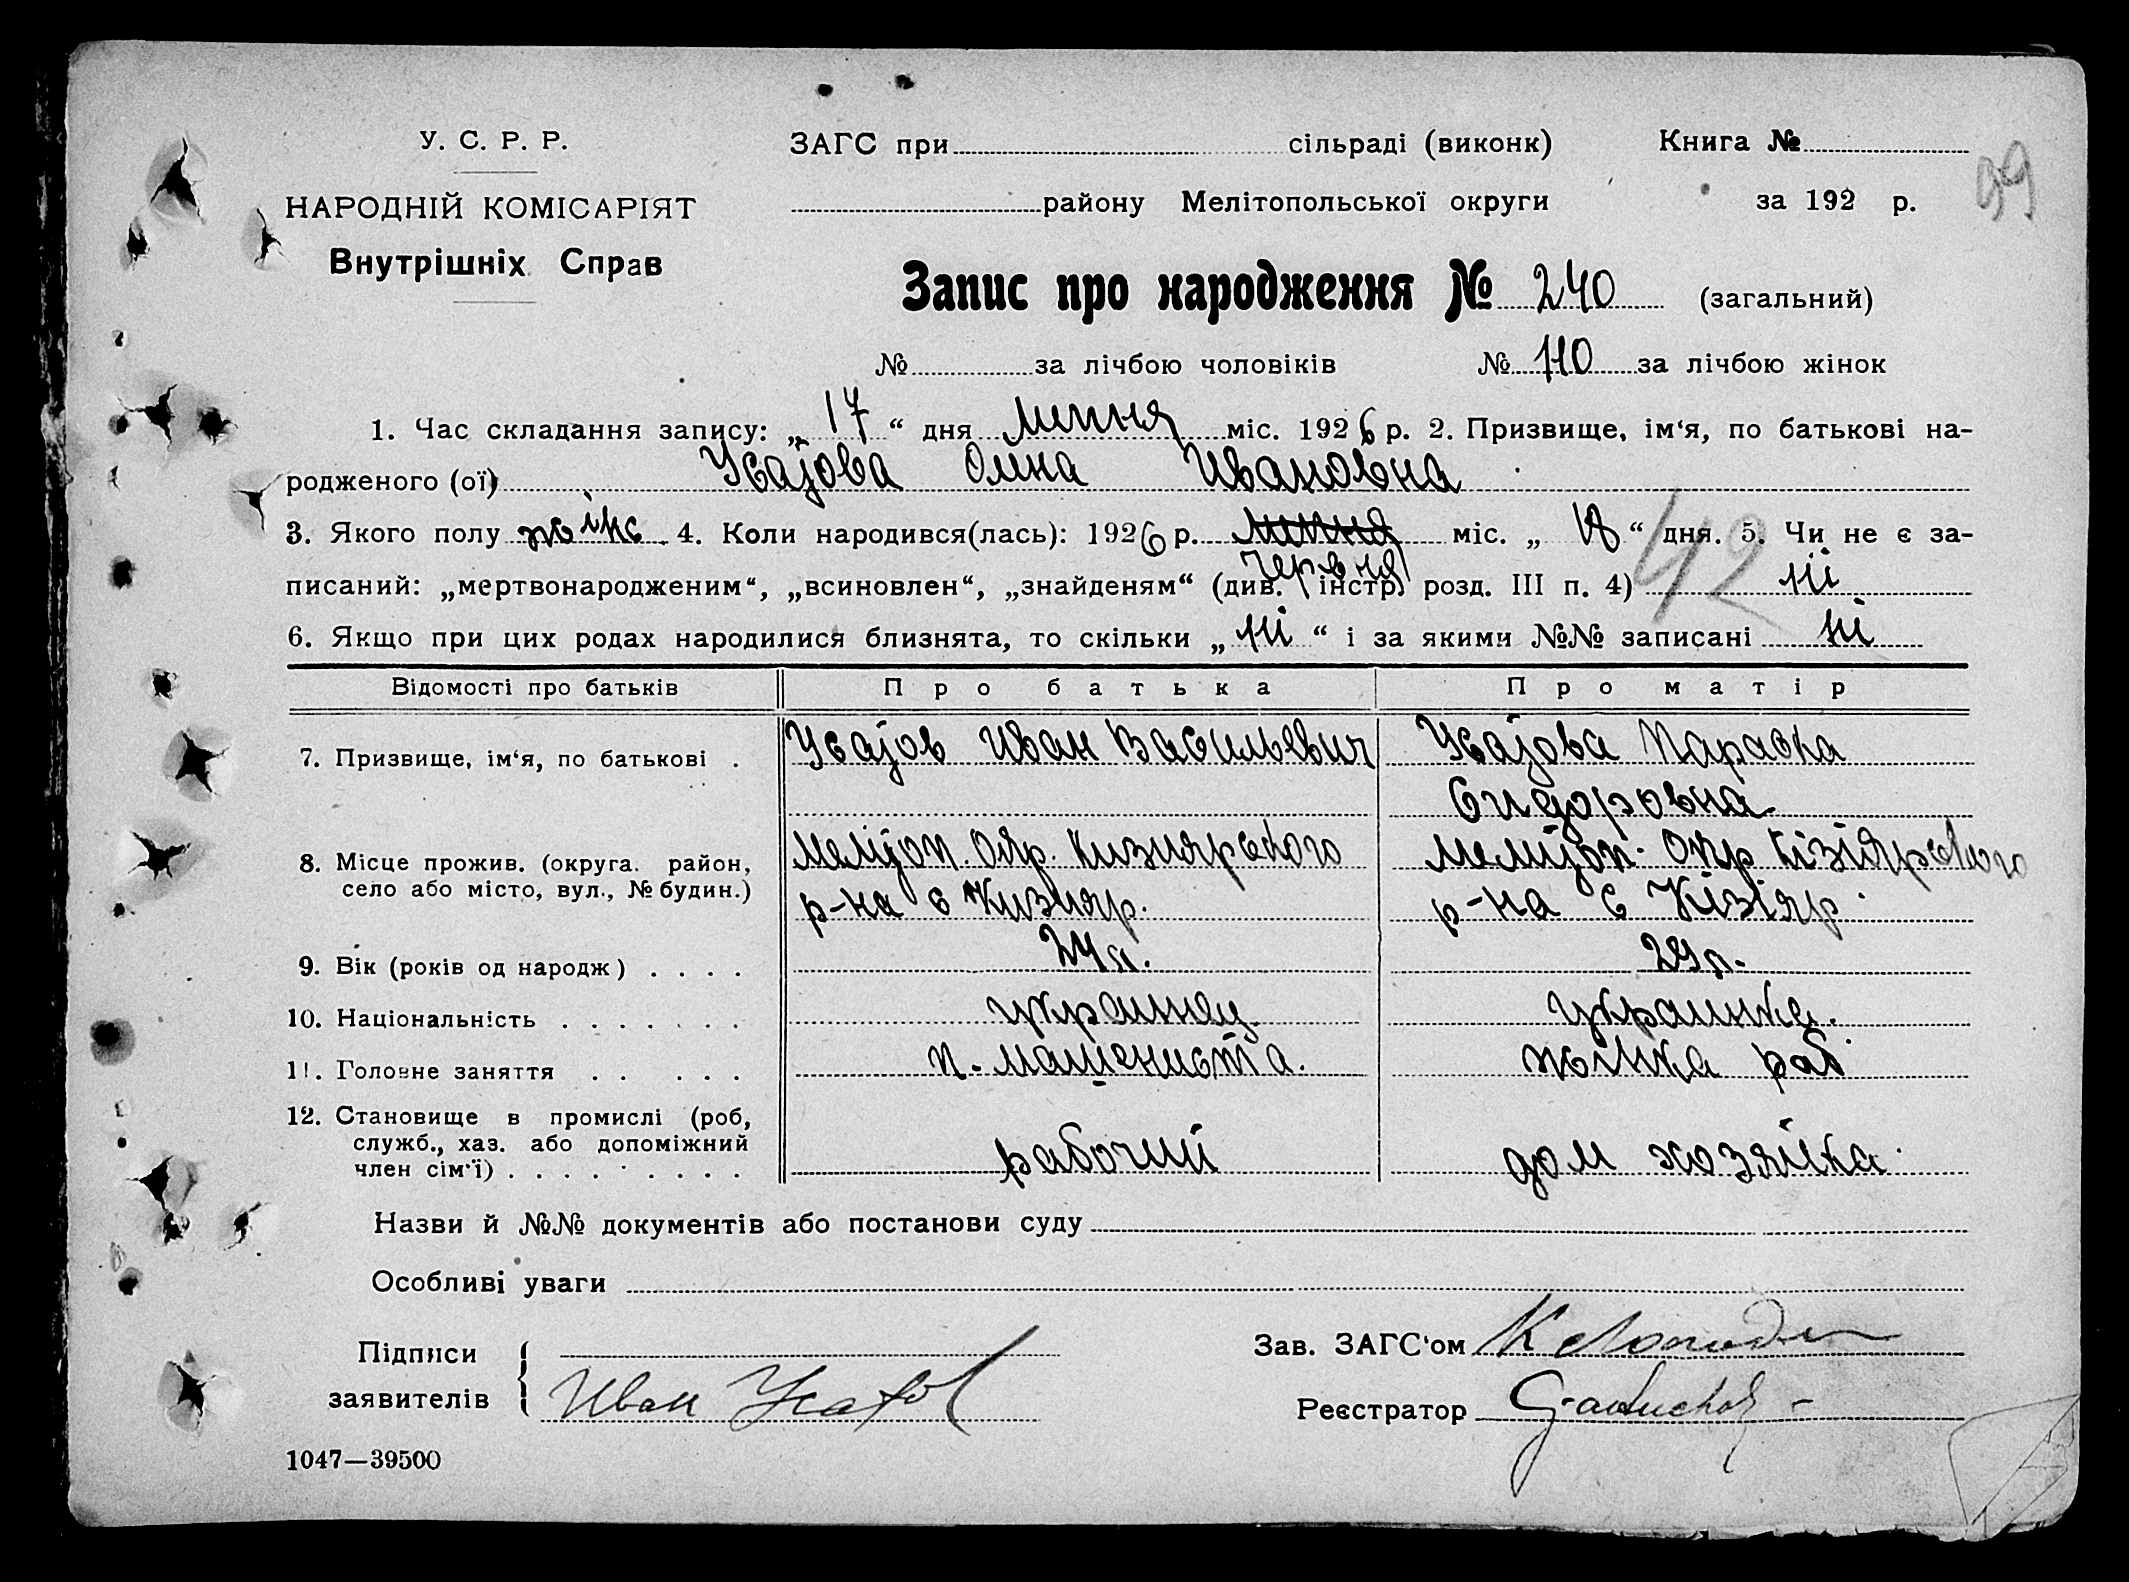 У. С. Р. Р.
НАРОДНІЙ КОМІСАРІЯТ
Внутрішніх Справ
ЗАГС при сільраді (виконк) Книга №
району Мелітопольської округи за 192 р.
99
Запис про народження № 240 (загальний)
№ за лічбою чоловіків № 110 за лічбою жінок
1. Час складання запису: „ 17 “ дня липня міс. 1926 р. 2. Призвище, ім‘я, по батькові на-
родженого (ої) Усатова Анна Ивановна
3. Якого полу жінс. 4. Коли народився(лась): 1926 р. липня міс. „ “ дня. 5. Чи не є за-
червня
писаний: „мертвонародженим“, „всиновлен“, „знайденям“ (див. інстр. розд. III п. 4) ні
42
6. Якщо при цих родах народилися близнята, то скільки „ ні “ і за якими №№ записані ні
Відомості про батьків Про батька Про матір
7. Призвище, ім‘я, по батькові . Усатов Иван Васильевич Усатова Параска
Сидоровна
8. Місце прожив. (округа. район, Мелітоп. Окр. Кизиярского Меліитоп. Окр Кізіярского
село або місто, вул., № будин.) р-на с Кизияр. р-на с Кізіяр.
9. Вік (років од народж) . . . . 24 л. 29 л.
10. Національність . . . . . . . украинец украинка.
11. Головне заняття . . . . . п. машениста. жінка раб
12. Становище в промислі (роб,
служб., хаз. або допоміжний
член сім‘ї) . . . . . . . . рабочий дом хозяйка.
Назви й №№ документів або постанови суду
Особливі уваги
Підписи
заявителів Иван Усатов
Зав. ЗАГС‘ом
Реєстратор
1047—39500